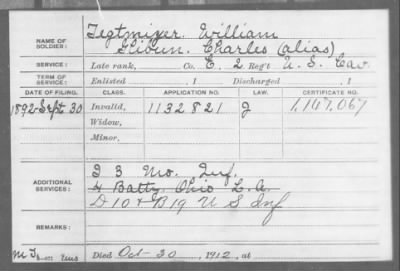 NAME OF SOLDIER: Tegtmixer. William
Charles (alias)
SERVICE: Late rank, Co. E, 2 Reg't U. S. Cav.
TERM OF SERVICE: Enlisted , 1 Discharged , 1
DATE OF FILING. CLASS. APPLICATION NO. LAW. CERTIFICATE NO.
1892-Sept 30 Invalid, 1132821 J 1,147,067
Widow,
Minor,
I 3 Mo. Inf.
ADDITIONAL SERVICES: 4 Batty. Ohio L. A.
D 10 & B 19 U S Inf
REMARKS:
Died Oct 30, 1912, at